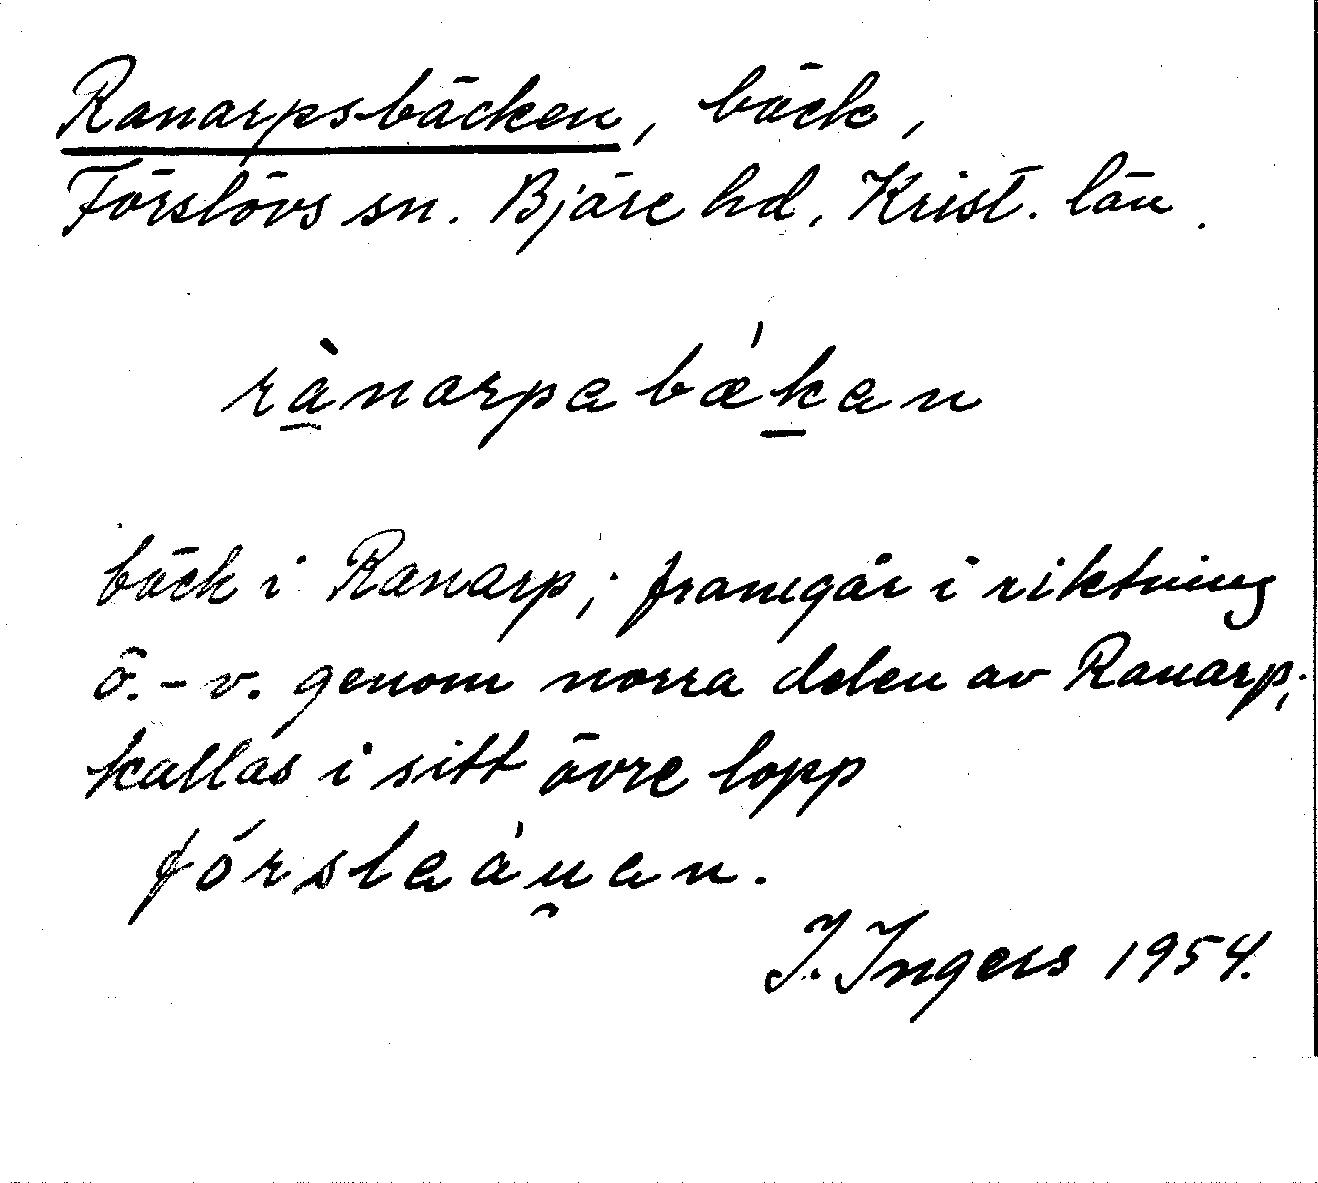 Ranarpsbäcken, bäck,
Förslövs sn. Bjäre hd, Krist. län.
rànarpabǽkan
bäck i Ranarp; framgår i riktning
ö.-v. genom norra delen av Ranarp;
kallas i sitt övre lopp
fórslaàu̯an.
I. Ingers 1954.